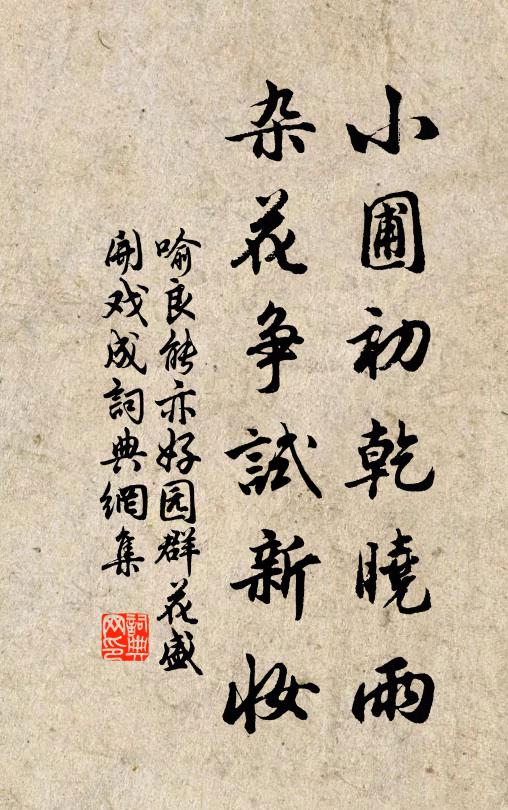 小圃初乾曉雨
杂花争試新妝
喻良能亦好园群花盛
開戏成詞典網集
詞典
网印